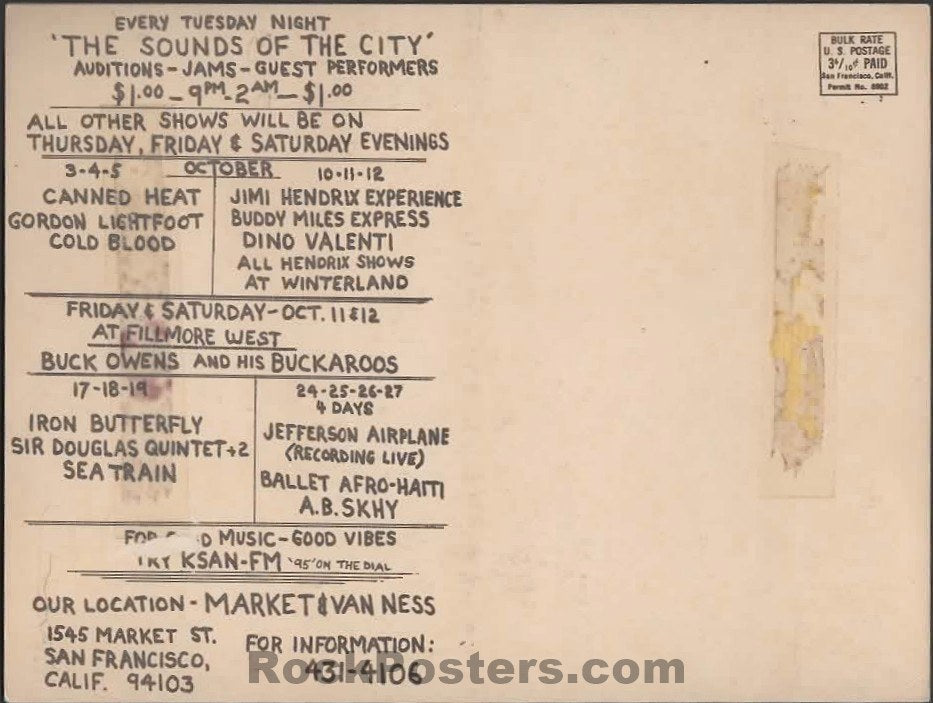 EVERY TUESDAY NIGHT
'THE SOUNDS OF THE CITY'
AUDITIONS - JAMS - GUEST PERFORMERS
$1.00 - 9PM - 2AM - $1.00
ALL OTHER SHOWS WILL BE ON
THURSDAY, FRIDAY & SATURDAY EVENINGS
OCTOBER
3-4-5
CANNED HEAT
GORDON LIGHTFOOT
COLD BLOOD
10-11-12
JIMI HENDRIX EXPERIENCE
BUDDY MILES EXPRESS
DINO VALENTI
ALL HENDRIX SHOWS
AT WINTERLAND
FRIDAY & SATURDAY - OCT. 11 & 12
AT FILLMORE WEST
BUCK OWENS AND HIS BUCKAROOS
17-18-19
IRON BUTTERFLY
SIR DOUGLAS QUINTET +2
SEA TRAIN
24-25-26-27
4 DAYS
JEFFERSON AIRPLANE
(RECORDING LIVE)
BALLET AFRO-HAITI
A.B. SKHY
MUSIC - GOOD VIBES
KSAN-FM '95' ON THE DIAL
OUR LOCATION - MARKET & VAN NESS
1545 MARKET ST.
SAN FRANCISCO,
CALIF. 94103
FOR INFORMATION:
431-4106
BULK RATE
U. S. POSTAGE
3 4/10¢ PAID
San Francisco, Calif.
Permit No. 8902
RockPosters.com